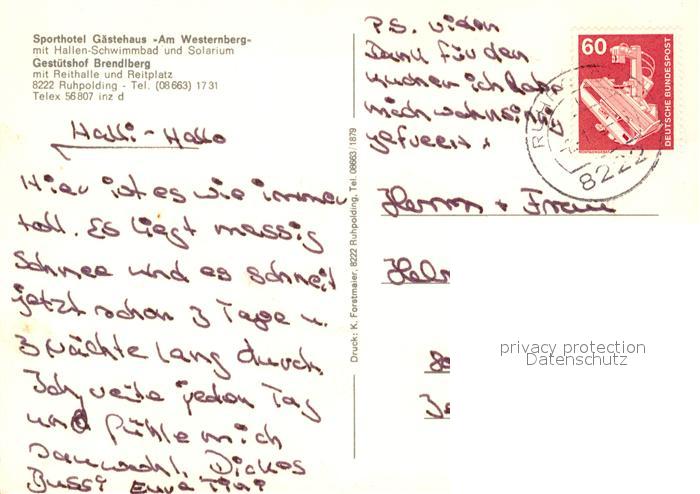 Sporthotel Gästehaus »Am Westernberg«
mit Hallen-Schwimmbad und Solarium
Gestütshof Brendlberg
mit Reithalle und Reitplatz
8222 Ruhpolding - Tel. (08663) 1731
Telex 56807 inz d
Halli-Hallo
Hier ist es wie immer
toll. Es liegt massig
Schnee und es schneit
jetzt schon 3 Tage u.
3 Nächte lang durch.
Ich reite jeden Tag
und fühle mich
sauwohl. Dickes
Bussi Eure
P.S. vielen
Dank für den
Kuchen ich habe
mich wahnsinnig
gefreut
Druck: K. Forstmaier, 8222 Ruhpolding, Tel. 08663/1879
60
DEUTSCHE BUNDESPOST
8222
Herrn + Frau
privacy protection
Datenschutz